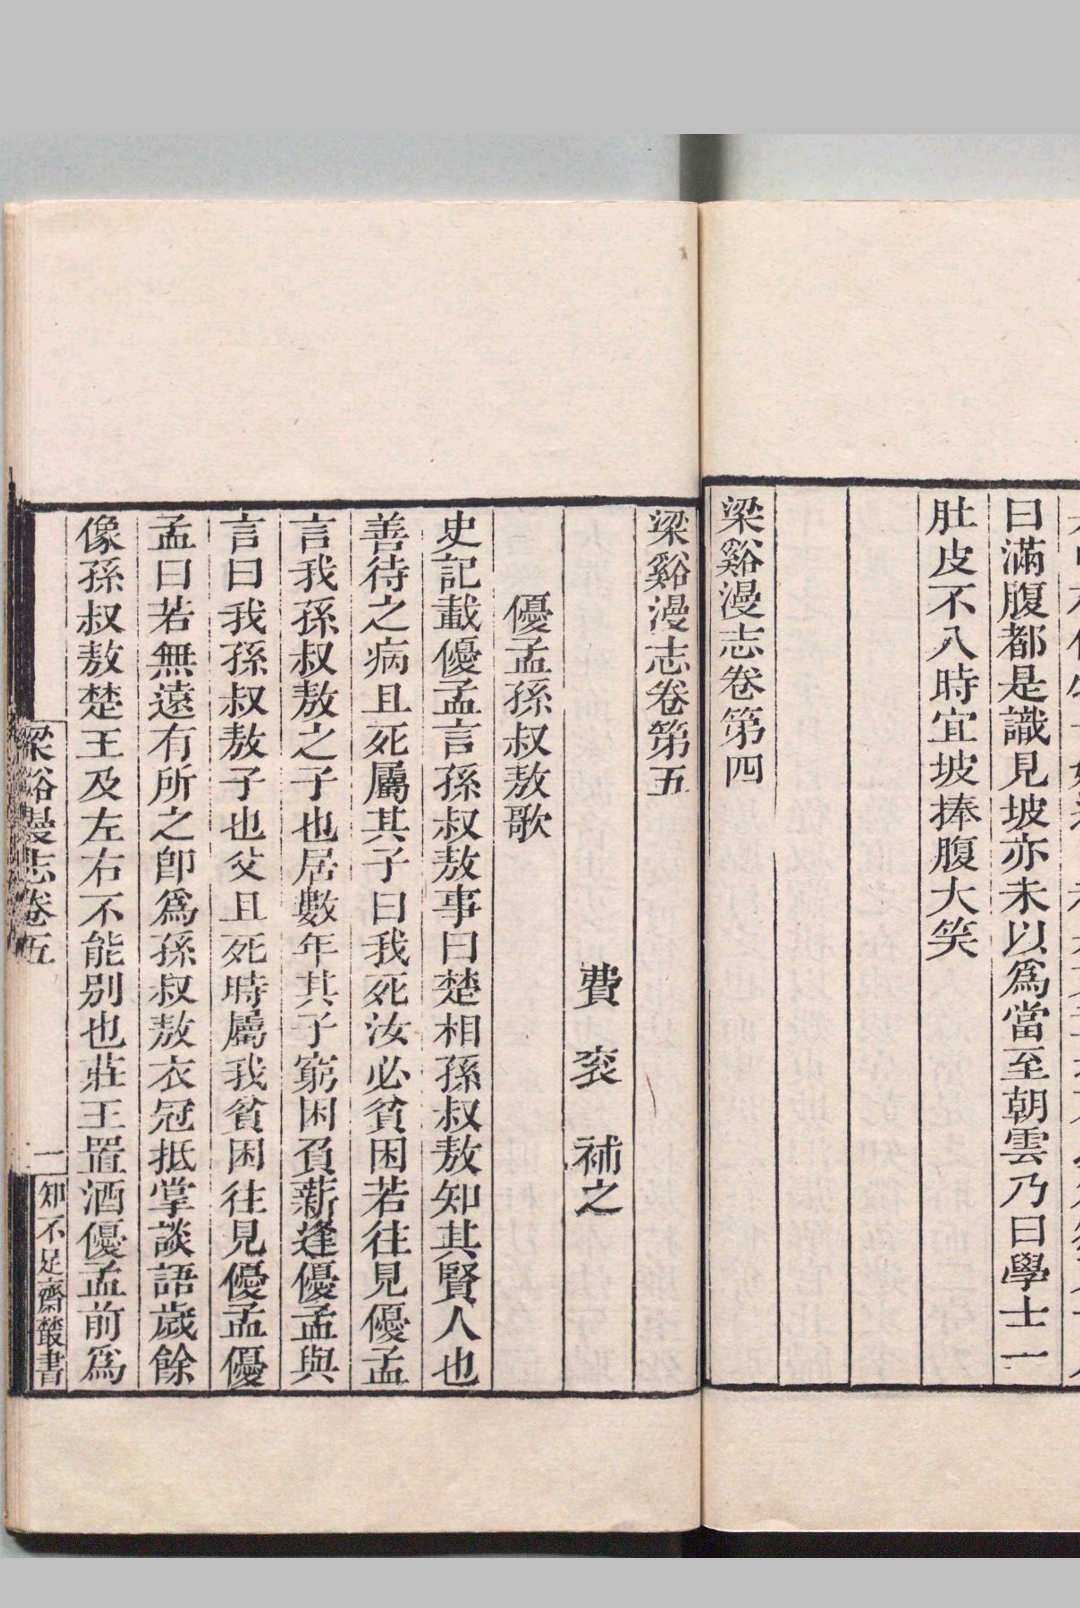 曰滿腹都是識見坡亦未以爲當至朝雲乃曰學士一
肚皮不入時宜坡捧腹大笑
梁谿漫志卷第四
梁谿漫志卷第五
費衮補之
優孟孫叔敖歌
史記載優孟言孫叔敖事曰楚相孫叔敖知其賢人也
善待之病且死屬其子曰我死汝必貧困若往見優孟
言我孫叔敖之子也居數年其子窮困負薪逢優孟與
言曰我孫叔敖子也父且死時屬我貧困往見優孟優
孟曰若無遠有所之卽爲孫叔敖衣冠抵掌談語歲餘
像孫叔敖楚王及左右不能别也莊王置酒優孟前爲
梁谿漫志卷五
一
知不足齋叢書